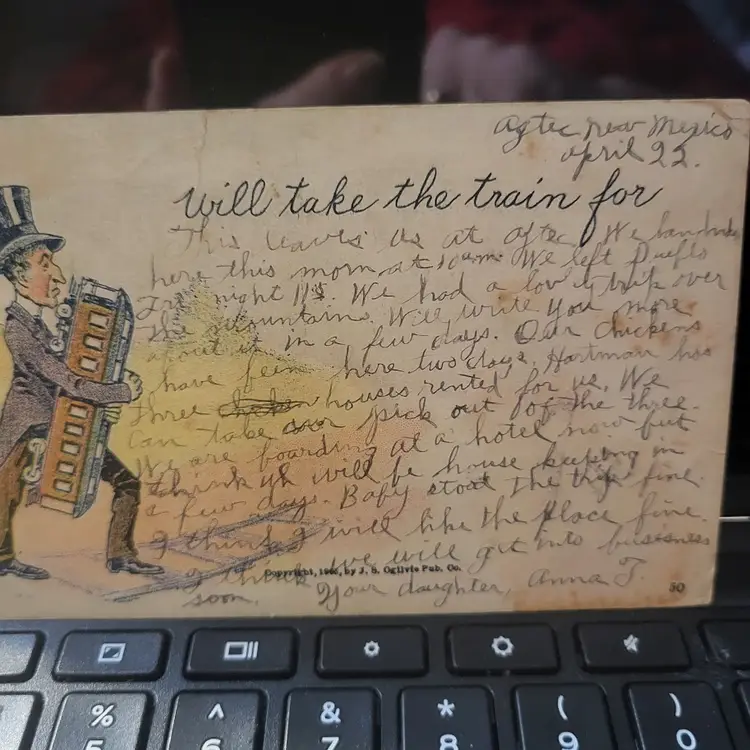 Aztec New Mexico
april 22.
will take the train for
This leaves us at Aztec. We landed
here this morn at 10 am. We left Pueblo
night We had a lovely trip over
the mountains. Will write you more
about it in a few days. Our chickens
have been here two days. Hartman has
three houses rented for us. We
can take our pick out of the three.
We are boarding at a hotel now but
think we will be house keeping in
a few days. Baby stood the trip fine.
I think I will like the place fine.
I think we will get into buisiness
Copyright, by J. S. Ogilvie Pub. Co.
soon. Your daughter, Anna F.
50
% ^ & * ( )
5 6 7 8 9 0